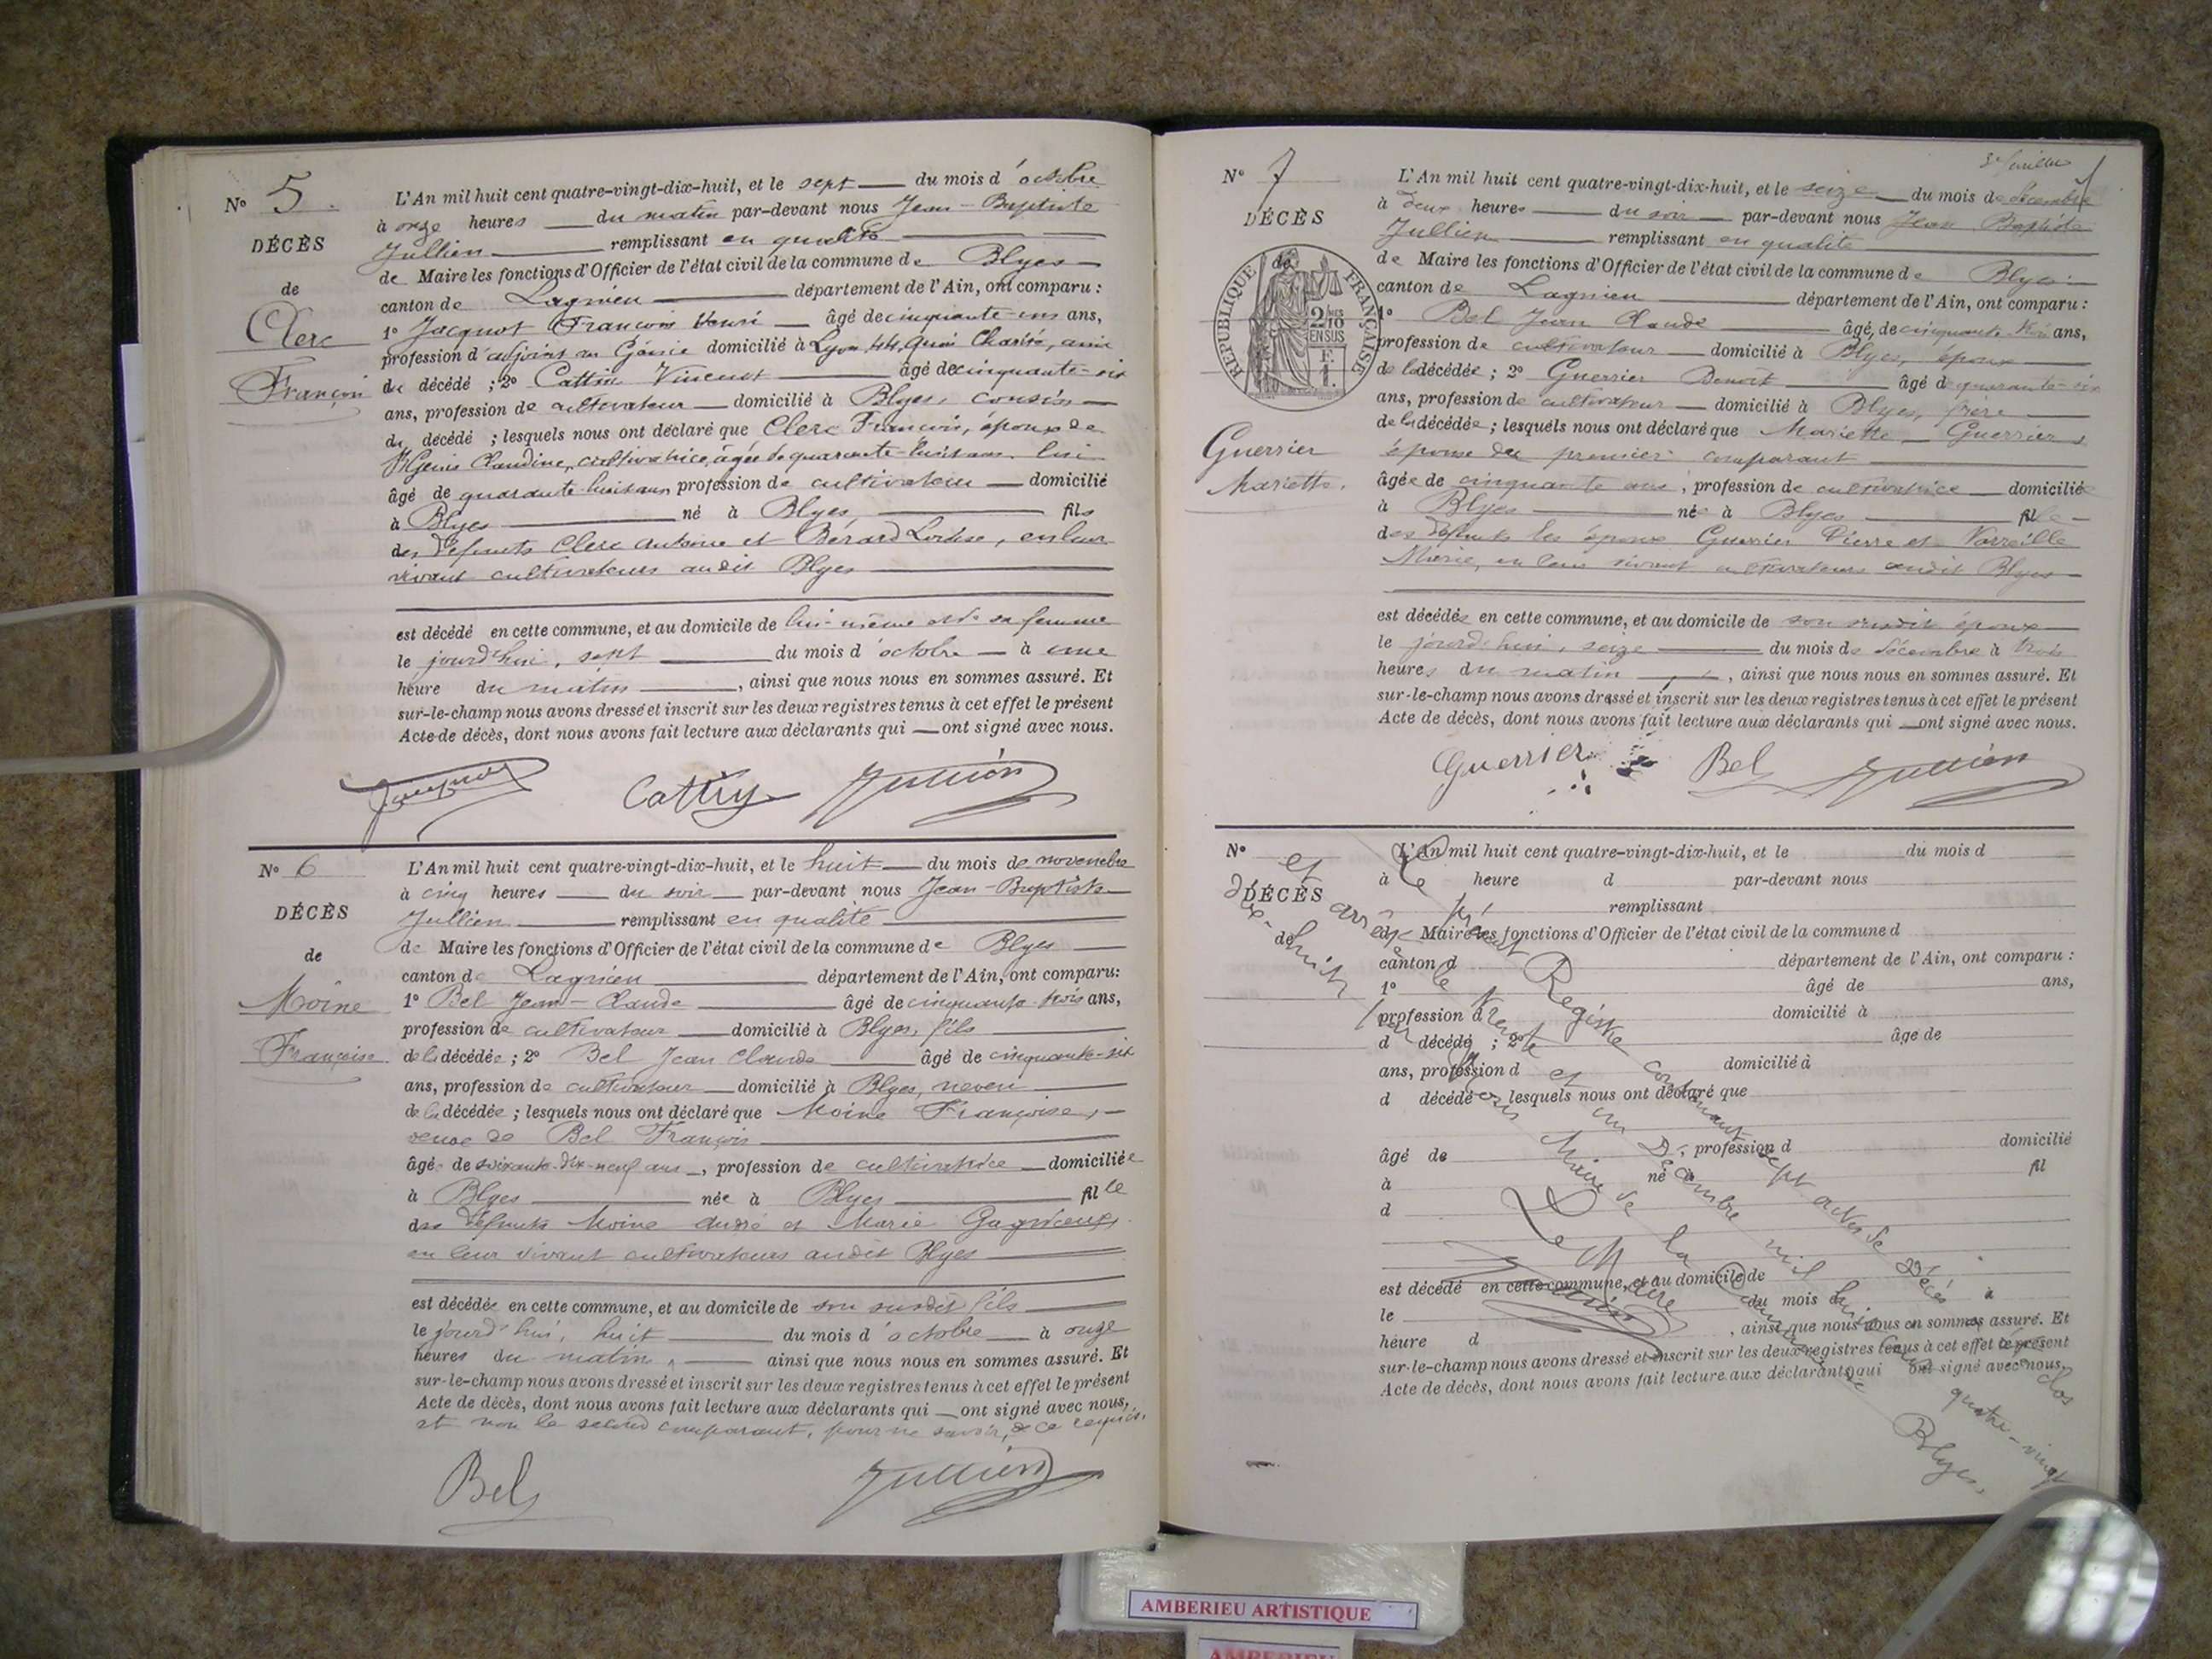 N° 5.
DÉCÈS
de
Clerc
François
L'An mil huit cent quatre-vingt-dix-huit, et le sept du mois d'octobre
à onze heures du matin par-devant nous Jean-Baptiste
Jullien remplissant en qualité
de Maire les fonctions d'Officier de l'état civil de la commune de Blyes
canton de Lagnieu département de l'Ain, ont comparu :
1° Jacquot François Henri âgé de cinquante-un ans,
profession d'adjoint au Génie domicilié à Lyon, 44, Quai Charité, ami
du décédé ; 2° Cattin Vincent âgé de cinquante-six
ans, profession de cultivateur domicilié à Blyes, cousin
du décédé ; lesquels nous ont déclaré que Clerc François, époux de
Claudine, cultivatrice, âgée de quarante-huit ans, lui
âgé de quarante-huit ans profession de cultivateur domicilié
à Blyes né à Blyes, fils
des défunts Clerc Antoine et Bérard Louise, en leur
vivant cultivateurs audit Blyes
est décédé en cette commune, et au domicile de lui-même et de sa femme
le jourd'hui, sept du mois d'octobre à une
heure du matin, ainsi que nous nous en sommes assuré. Et
sur-le-champ nous avons dressé et inscrit sur les deux registres tenus à cet effet le présent
Acte de décès, dont nous avons fait lecture aux déclarants qui ont signé avec nous.
Jacquot Cattin Jullien
N° 6
DÉCÈS
de
Moine
Françoise
L'An mil huit cent quatre-vingt-dix-huit, et le huit du mois de novembre
à cinq heures du soir par-devant nous Jean-Baptiste
Jullien remplissant en qualité
de Maire les fonctions d'Officier de l'état civil de la commune de Blyes
canton de Lagnieu département de l'Ain, ont comparu:
1° Bel Jean-Claude âgé de cinquante-trois ans,
profession de cultivateur domicilié à Blyes, fils
de la décédée ; 2° Bel Jean Claude âgé de cinquante-six
ans, profession de cultivateur domicilié à Blyes, neveu
de la décédée ; lesquels nous ont déclaré que Moine Françoise,
veuve de Bel François
âgée de soixante-dix-neuf ans, profession de cultivatrice domiciliée
à Blyes née à Blyes fille
des défunts Moine André et Marie
en leur vivant cultivateurs audit Blyes
est décédée en cette commune, et au domicile de son susdit fils
le jourd'hui, huit du mois d'octobre à onze
heures du matin, ainsi que nous nous en sommes assuré. Et
sur-le-champ nous avons dressé et inscrit sur les deux registres tenus à cet effet le présent
Acte de décès, dont nous avons fait lecture aux déclarants qui ont signé avec nous,
et non le second comparant, pour ne savoir, de ce requis.
Bel Jullien
N° 7
DÉCÈS
de
RÉPUBLIQUE FRANÇAISE
2/10 EN SUS
F. 1.
Guerrier
Mariette.
L'An mil huit cent quatre-vingt-dix-huit, et le seize du mois de décembre
à deux heures du soir par-devant nous Jean Baptiste
Jullien remplissant en qualité
de Maire les fonctions d'Officier de l'état civil de la commune de Blyes
canton de Lagnieu département de l'Ain, ont comparu :
1° Bel Jean Claude âgé de cinquante trois ans,
profession de cultivateur domicilié à Blyes, époux
de la décédée ; 2° Guerrier Benoît âgé de quarante-six
ans, profession de cultivateur domicilié à Blyes, frère
de la décédée ; lesquels nous ont déclaré que Mariette Guerrier,
épouse du premier comparant
âgée de cinquante ans, profession de cultivatrice domiciliée
à Blyes née à Blyes fille
des défunts les époux Guerrier Pierre et
Marie, en leur vivant cultivateurs audit Blyes
est décédée en cette commune, et au domicile de son susdit époux
le jourd'hui, seize du mois de décembre à trois
heures du matin, ainsi que nous nous en sommes assuré. Et
sur-le-champ nous avons dressé et inscrit sur les deux registres tenus à cet effet le présent
Acte de décès, dont nous avons fait lecture aux déclarants qui ont signé avec nous.
Guerrier Bel Jullien
N°
DÉCÈS
de
L'An mil huit cent quatre-vingt-dix-huit, et le du mois d
à heure d par-devant nous
remplissant
d Maire les fonctions d'Officier de l'état civil de la commune d
canton d département de l'Ain, ont comparu :
1° âgé de ans,
profession d domicilié à
d décédé ; 2° âge de
ans, profession d domicilié à
d décédé lesquels nous ont déclaré que
âgé de , profession d domicilié
à né à fil
d
est décédé en cette commune, et au domicile de
le du mois d à
heure d , ainsi que nous nous en sommes assuré. Et
sur-le-champ nous avons dressé et inscrit sur les deux registres tenus à cet effet le présent
Acte de décès, dont nous avons fait lecture aux déclarants qui ont signé avec nous.
Le présent Registre contenant sept actes de Décès clos
et arrêté le trente et un Décembre mil huit cent quatre-vingt
dix-huit par Nous Maire de la Commune de Blyes.
Le Maire
Jullien
AMBERIEU ARTISTIQUE
AMBERIEU